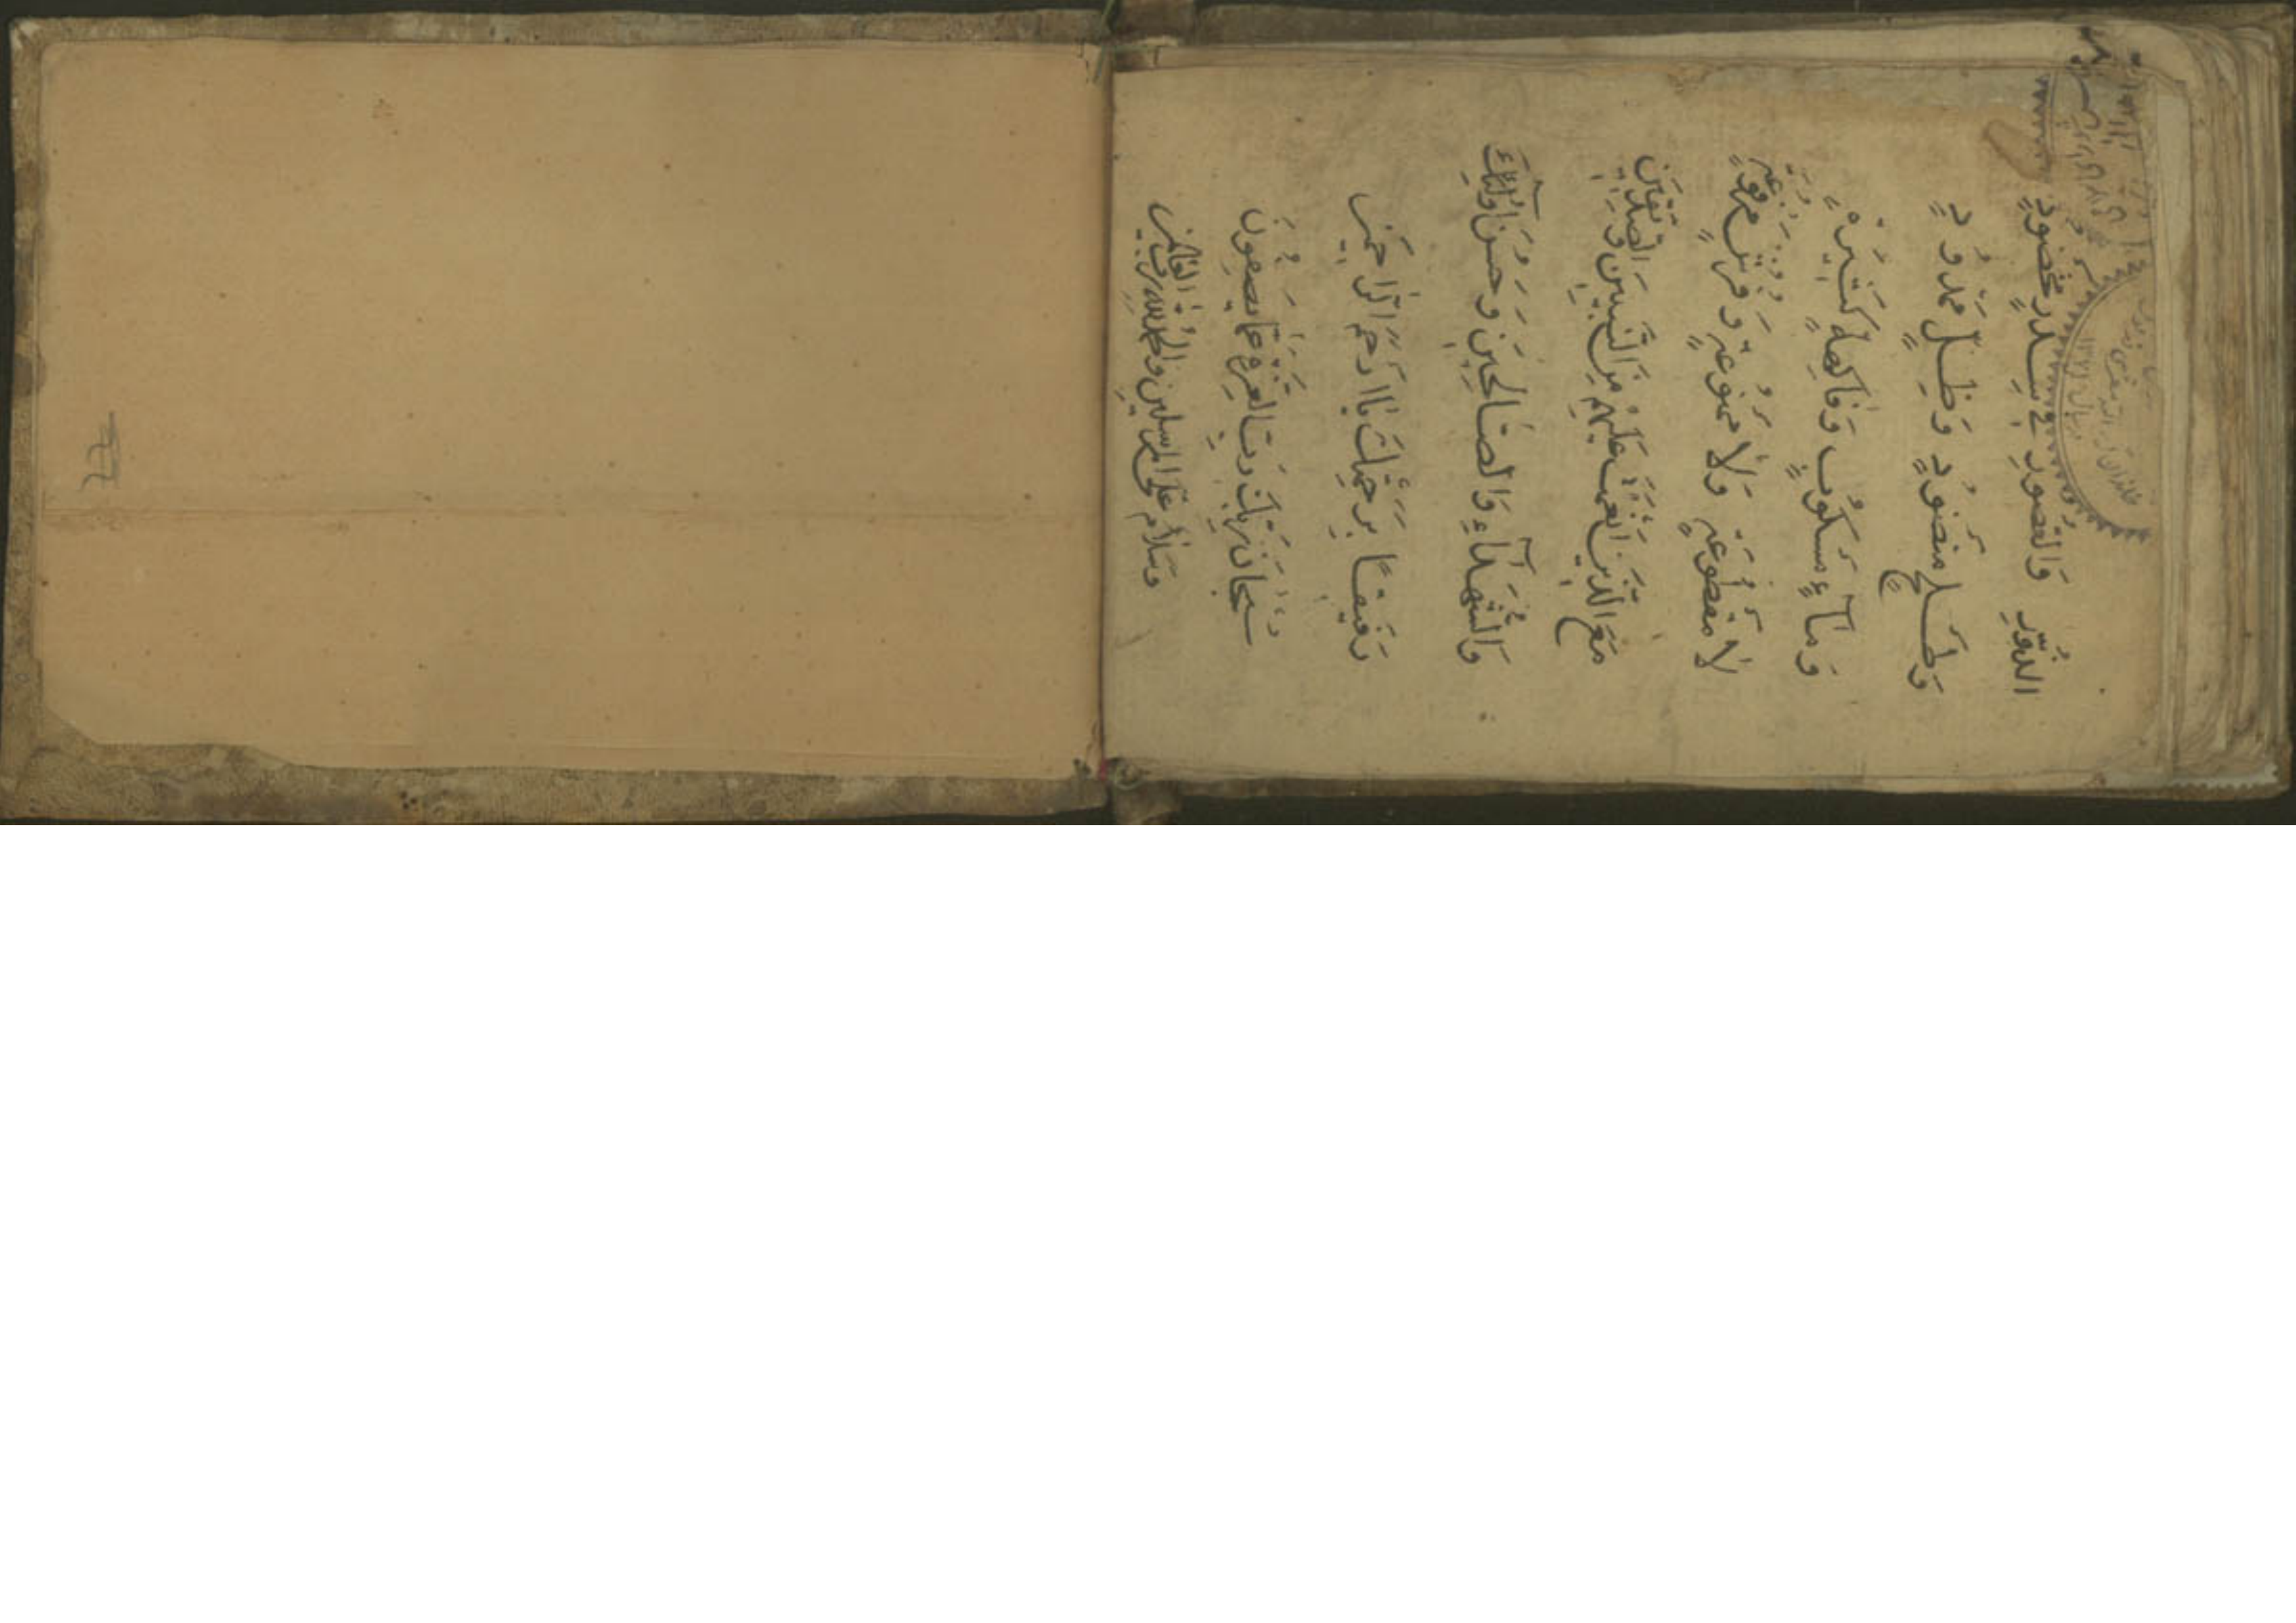 الدُّورِ وَالْقُصُورِ فِي سِدْرٍ مَخْضُودٍ
وَطَلْحٍ مَنْضُودٍ وَظِلٍّ مَمْدُودٍ
وَمَآءٍ مَسْكُوبٍ وَفَاكِهَةٍ كَثِيرَةٍ
لَا مَقْطُوعَةٍ وَلَا مَمْنُوعَةٍ وَفُرُشٍ مَرْفُوعَةٍ
مَعَ الَّذِينَ اَنْعَمْتَ عَلَيْهِمْ مِنَ النَّبِيِّينَ وَالصِّدِّيقِينَ
وَالشُّهَدَآءِ وَالصَّالِحِينَ وَحَسُنَ اُولٰٓئِكَ
رَفِيقًا بِرَحْمَتِكَ يَا اَرْحَمَ الرَّاحِمِينَ
سُبْحَانَ رَبِّكَ رَبِّ الْعِزَّةِ عَمَّا يَصِفُونَ
وَسَلَامٌ عَلَى الْمُرْسَلِينَ وَالْحَمْدُ لِلّٰهِ رَبِّ الْعَالَمِينَ